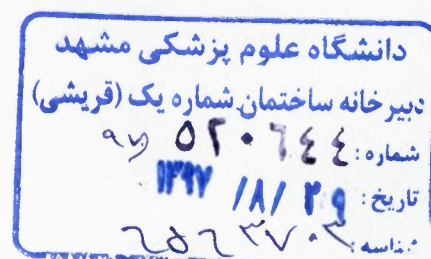 دانشگاه علوم پزشکی مشهد
دبیرخانه ساختمان شماره یک (قریشی)
شماره: ۵۲۰۶۴۴ ۹۷
تاریخ: ۱۳۹۷/۸/۲۹
شناسه: